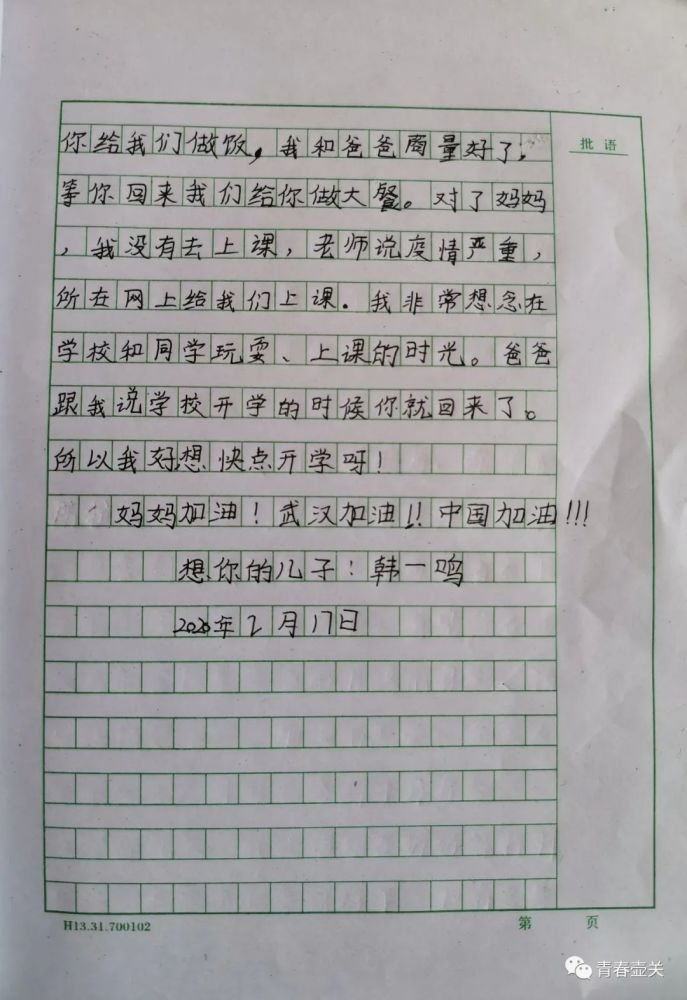 批语
你给我们做饭，我和爸爸商量好了，
等你回来我们给你做大餐。对了妈妈
，我没有去上课，老师说疫情严重，
所在网上给我们上课．我非常想念在
学校和同学玩耍、上课的时光。爸爸
跟我说学校开学的时候你就回来了。
所以我好想快点开学呀！
妈妈加油！武汉加油!!中国加油!!!
想你的儿子：韩一鸣
2020年2月17日
H13.31.700102
第 页
青春壶关